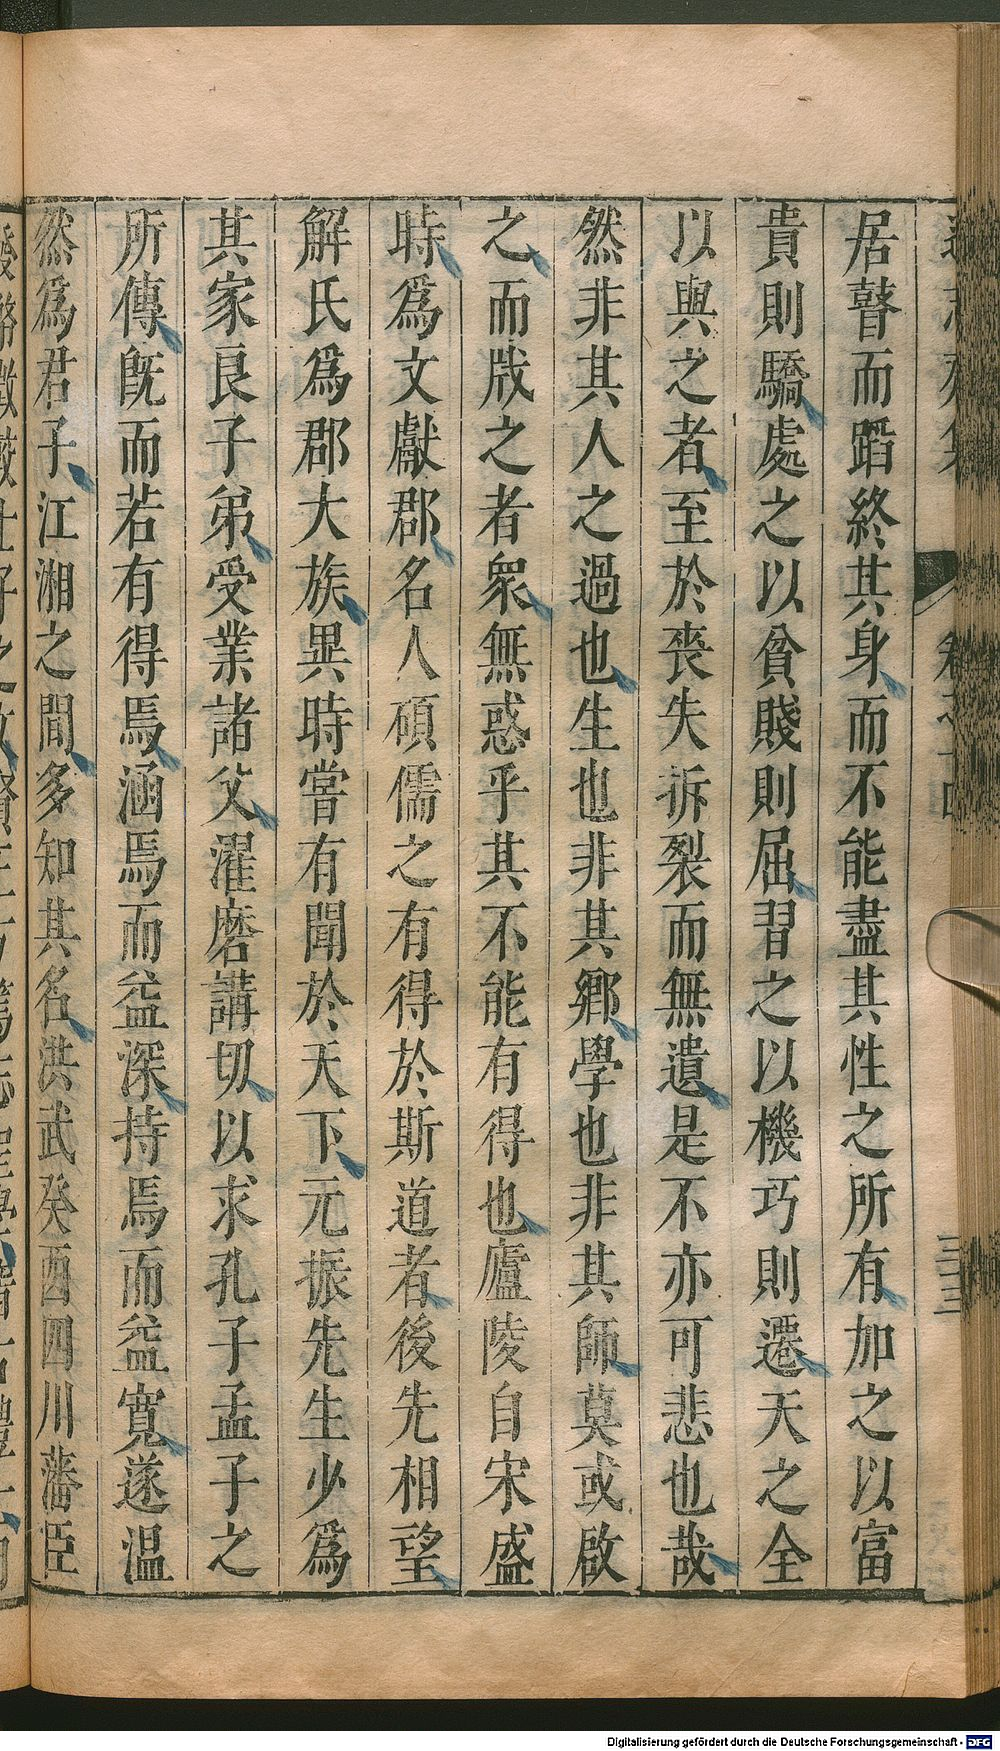 居瞽而蹈終其身而不能盡其性之所有加之以富
貴則驕處之以貧賤則屈習之以機巧則遷天之全
以與之者至於喪失拆裂而無遺是不亦可悲也哉
然非其人之過也生也非其鄉學也非其師莫或啟
之而戕之者衆無惑乎其不能有得也廬陵自宋盛
時爲文獻郡名人碩儒之有得於斯道者後先相望
解氏爲郡大族異時嘗有聞於天下元振先生少爲
其家良子弟受業諸父濯磨講切以求孔子孟子之
所傳旣而若有得焉涵焉而益深持焉而益寬遂溫
然爲君子江湘之間多知其名洪武癸酉四川藩臣
Digitalisierung gefördert durch die Deutsche Forschungsgemeinschaft - DFG